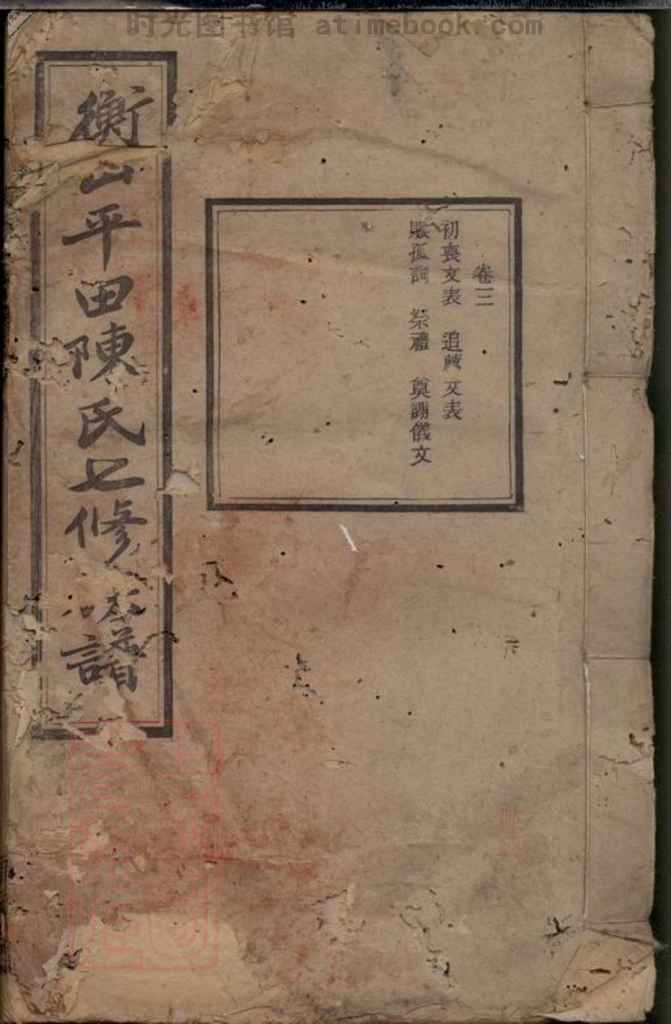 时光图书馆 atimebook.com
卷三
初喪文表 追薦文表
賑孤詞 祭禮 奠謝儀文
衡山平田陳氏七修族譜